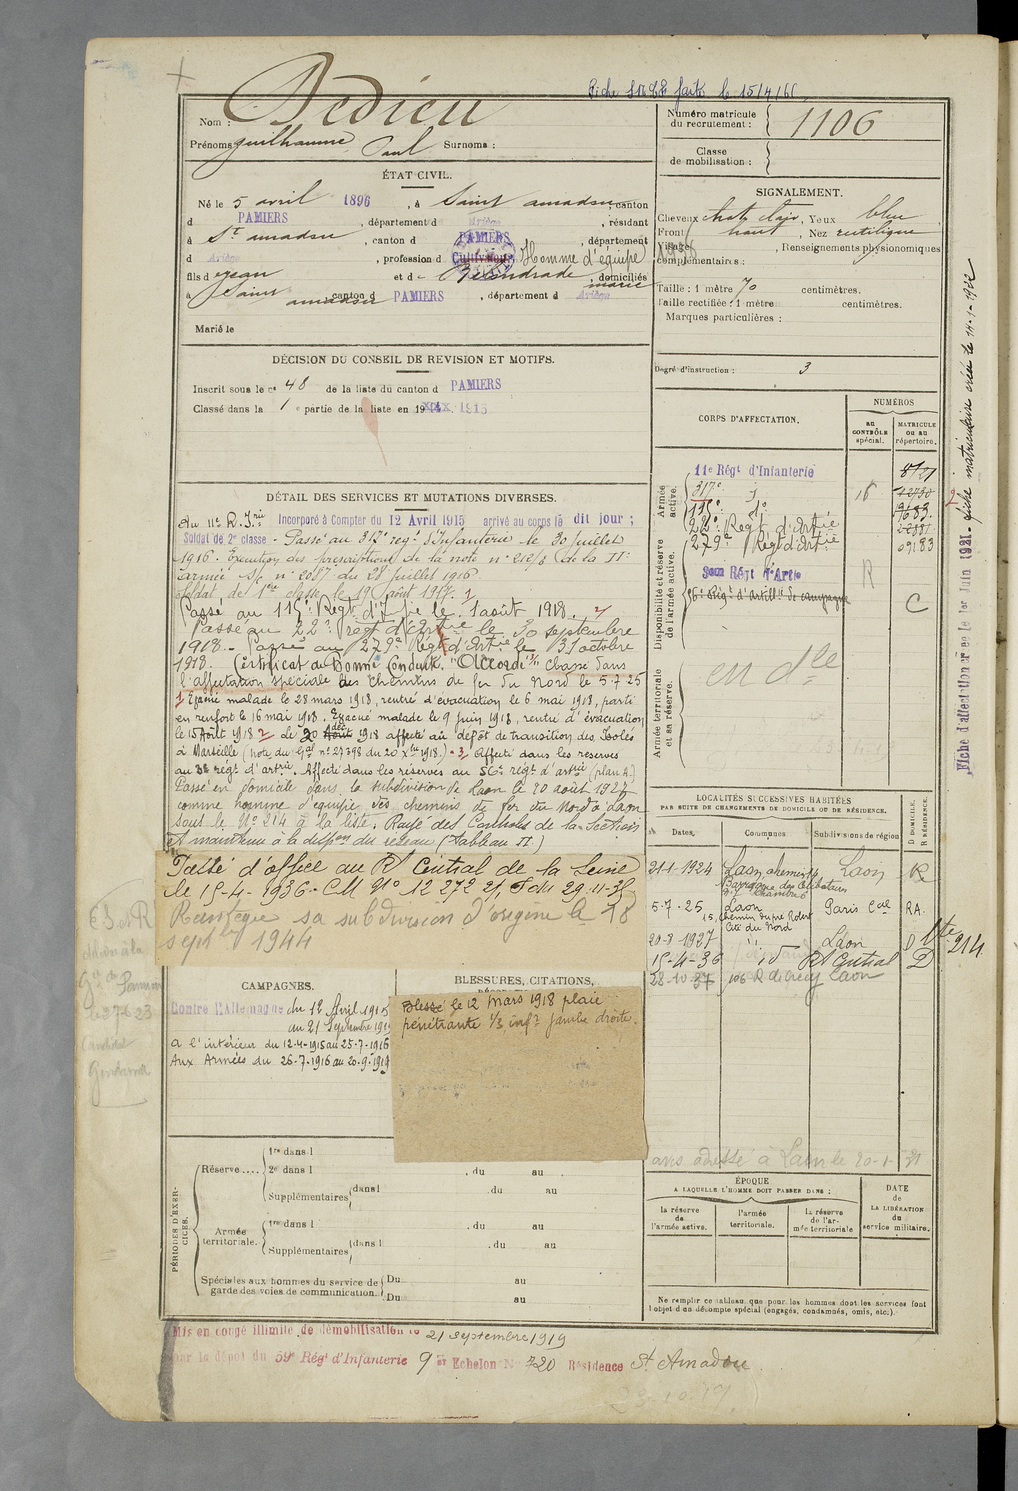 Fiche faite le 15/4/
Nom : Dedieu
Prénoms Guilhaume Paul Surnoms :
Numéro matricule du recrutement : 1106
Classe de mobilisation :
ÉTAT CIVIL.
Né le 5 avril 1896, à Saint amadou canton
d PAMIERS, département d Ariège, résidant
à St amadou, canton d PAMIERS, département
d Ariège, profession d Cultivateur Homme d'équipe
fils d e jean et d e, domiciliés
à Saint amadou canton d PAMIERS, département d Ariège
marié
Marié le
SIGNALEMENT.
Cheveux chat. clair, Yeux bleu
Front haut, Nez rectiligne
Visage, Renseignements physionomiques
complémentaires :
Taille : 1 mètre 70 centimètres.
Taille rectifiée : 1 mètre centimètres.
Marques particulières :
Degré d'instruction : 3
DÉCISION DU CONSEIL DE REVISION ET MOTIFS.
Inscrit sous le n° 48 de la liste du canton d PAMIERS
Classé dans la 1e partie de la liste en 19 1915
CORPS D'AFFECTATION.
NUMÉROS
au CONTRÔLE spécial.
MATRICULE ou au répertoire.
Armée active.
11e Régt d'Infanterie
317e d°
115e d°
22e Regt d'Artie
279e Régt d'Artie
16
09183
Disponibilité et réserve de l'armée active.
Régt d'Artie
R
56e Régt d'Artillie de campagne
C
Armée territoriale et sa réserve.
en dlle
DÉTAIL DES SERVICES ET MUTATIONS DIVERSES.
Au 11e R. Irie Incorporé à Compter du 12 Avril 1915 arrivé au corps le dit jour ;
Soldat de 2e classe - Passé au regt d'Infanterie le 30 juillet
1916 - Exécution des prescriptions de la note n° 212/5 de la IIe
armée S/c n° 2087 du 28 juillet 1916
Soldat de 1ere classe le 19 août 1917. 1
Passé au 115e Regt d'Ifie le 1 août 1918. 2
Passé au 22e regt d'Artie le 30 septembre
1918 - Passé au 279e Régt d'Artie le 31 octobre
1918. Certificat de Bonne Conduite "Accordé" 3 Classé dans
l'affectation spéciale des chemins de fer du Nord le 5-7-25
1 Evacué malade le 28 mars 1918, rentré d'évacuation le 6 mai 1918, parti
en renfort le 16 mai 1918. Evacué malade le 9 juin 1918, rentré d'évacuation
le 15 Août 1918 2 Le 20 Août déc 1918 affecté au dépôt de transition des Isolés
à Marseille (note du Gal n° 27398 du 20 Xbre 1918.) - 3 Affecté dans les reserves
au régt d'artrie. Affecté dans les réserves au 56e régt d'artrie (plan A.)
Passé en domicile dans la subdivision de Laon le 20 août 1927
comme homme d'équipe des chemins de fer du Nord à Laon
sous le N° 214 à la liste. Rayé des Controles de la Section
et maintenu à la dispon du réseau (Tableau II)
Passé d'office au Rt Central de la Seine
le 15-4-1936 - CM N° 12 272 du 29-11-35
Réintégré sa subdivision d'origine le 18
septbre 1944
LOCALITÉS SUCCESSIVES HABITÉES
PAR SUITE DE CHANGEMENTS DE DOMICILE OU DE RÉSIDENCE.
Dates.
Communes
Subdivisions de région
D DOMICILE. R RÉSIDENCE.
21-1-1924 Laon, chemin Laon R
5-7-25 Laon Paris Cal RA.
15, chemin du pré Robert
Cité du Nord
20-8-1927 Laon D
15-4-36 id Rt Central D
28-10-37 Laon
Nte 214
CAMPAGNES.
Contre l'Allemagne du 12 Avril 1915
au 21 Septembre 1919
A l'intérieur du 12-4-1915 au 25-7-1916
Aux Armées du 26-7-1916 au 20-9-1919
BLESSURES, CITATIONS,
Blessé le 12 Mars 1918 plaie
pénétrante 1/3 infr jambe droite.
avis adressé à Laon le 20-1-31
PÉRIODES D'EXERCICES.
Réserve....
1re dans l
2e dans l, du au
Supplémentaires dans l, du au
Armée territoriale.
1re dans l, du au
Supplémentaires dans l, du au
Spéciales aux hommes du service de garde des voies de communication.
Du au
Du au
ÉPOQUE
A LAQUELLE L'HOMME DOIT PASSER DANS :
la réserve de l'armée active.
l'armée territoriale.
la réserve de l'armée territoriale
DATE de LA LIBÉRATION du service militaire.
Ne remplir ce tableau que pour les hommes dont les services font l'objet d'un décompte spécial (engagés, condamnés, omis, etc.).
Mis en congé illimité de démobilisation le 21 Septembre 1919
par le dépôt du 59e Régt d'Infanterie 9e Echelon N° 720 Résidence St Amadou
Fiche d'affectation créée le 1er Juin 1921. fiche matriculaire créée le 14-1-1922
2
Candidat
Gendarme